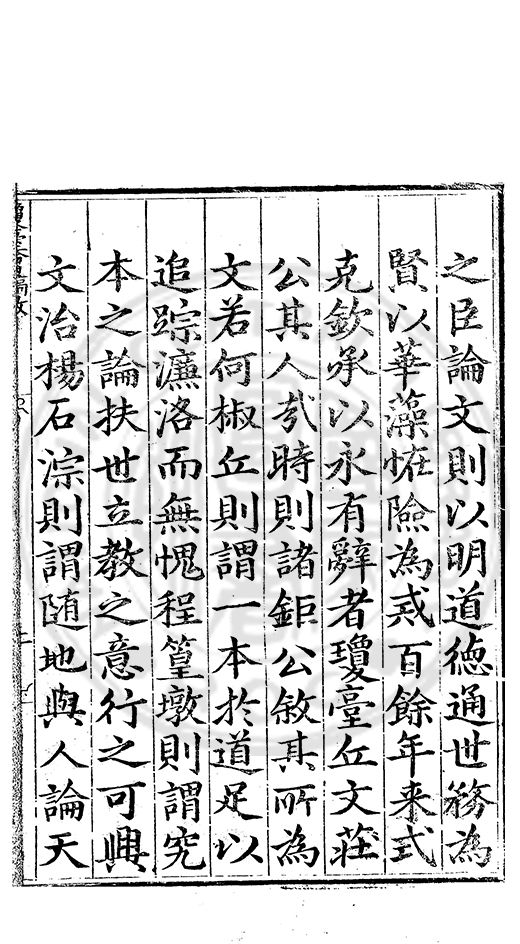 之臣論文則以明道德通世務為
賢以華藻恠險為戒百餘年来式
克欽承以永有辭者瓊臺丘文莊
公其人㢤時則諸鉅公敘其所為
文若何椒丘則謂一本扵道足以
追踪濂洛而無愧程篁墩則謂究
本之論扶世立教之意行之可興
文治楊石淙則謂随地與人論天